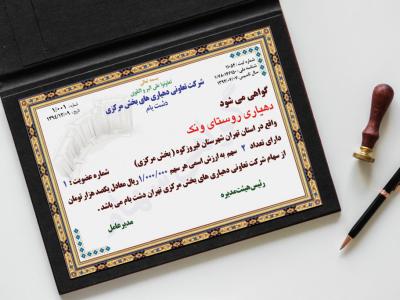 بسمه تعالی
تعاونوا علی البر و التقوی
شرکت تعاونی دهیاری های بخش مرکزی
دشت بام
شماره : ۱/۰۰۱
تاریخ : ۱۳۹۴/۱۲/۰۹
شماره ثبت :
شناسه ملی :
گواهی می شود
دهیاری روستای ونک
واقع در استان تهران شهرستان فیروزکوه ( بخش مرکزی )
شماره عضویت : ۱۰
دارای تعداد ۲ سهم به ارزش اسمی هر سهم ۱/۰۰۰/۰۰۰ ریال معادل یکصد هزار تومان
از سهام شرکت تعاونی دهیاری های بخش مرکزی تهران دشت بام می باشد .
رئیس هیئت مدیره
مدیرعامل